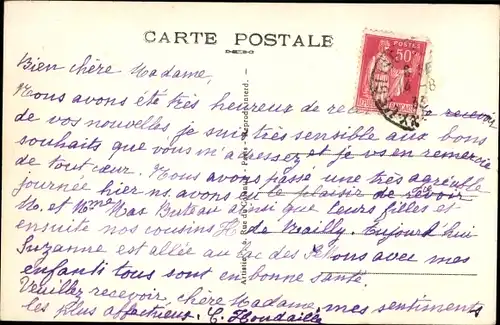 CARTE POSTALE
POSTES
50c
Bien chère Madame,
Nous avons été très heureux de recevoir
de vos nouvelles, je suis très sensible aux bons
souhaits que vous m'adressez et je vs en remercie
de tout cœur. Nous avons passé une très agréable
journée hier ns. avons eu le plaisir de revoir
M. et Mme Mas Buteau ainsi que leurs filles et
ensuite nos cousins H de Mailly. Aujourd'hui
Suzanne est allée au lac des Settons avec mes
enfants tous sont en bonne santé.
Veuillez recevoir, chère Madame, mes sentiments
les plus affectueux. C. Houdaille